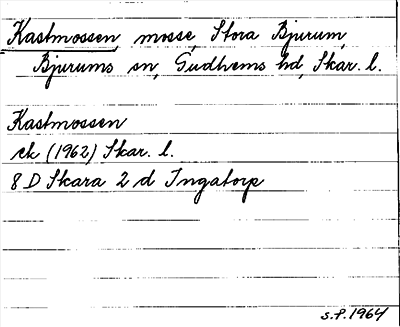 Kastmossen mosse, Stora Bjurum,
Bjurums sn, Gudhems hd, Skar. l.
Kastmossen
ek (1962) Skar. l.
8 D Skara 2 d Ingatorp
S.F. 1964